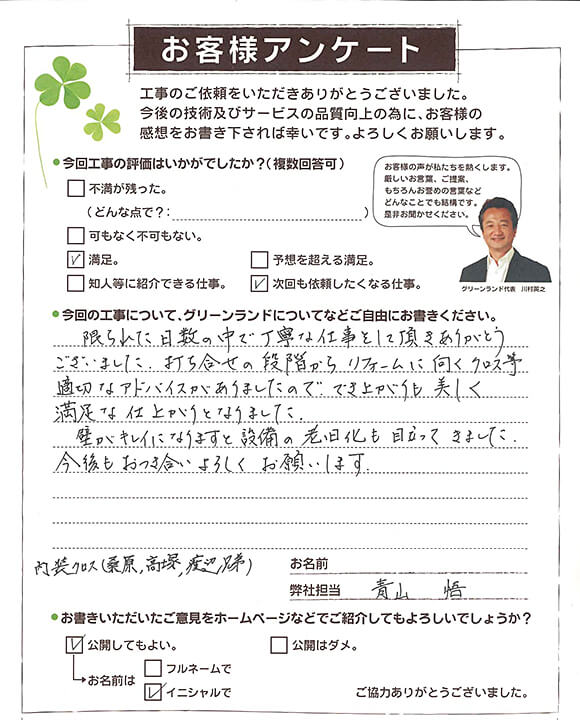 お客様アンケート
工事のご依頼をいただきありがとうございました。
今後の技術及びサービスの品質向上の為に、お客様の
感想をお書き下されば幸いです。よろしくお願いします。
●今回工事の評価はいかがでしたか?(複数回答可)
不満が残った。
(どんな点で?: )
可もなく不可もない。
満足。
予想を超える満足。
知人等に紹介できる仕事。
次回も依頼したくなる仕事。
お客様の声が私たちを熱くします。
厳しいお言葉、ご提案、
もちろんお誉めの言葉など
どんなことでも結構です。
是非お聞かせください。
グリーンランド代表 川村英之
●今回の工事について、グリーンランドについてなどご自由にお書きください。
限られた日数の中で丁寧な仕事をして頂きありがとう
ございました. 打ち合せの段階から リフォームに向くクロス等
適切なアドバイスがありましたので でき上がりも美しく
満足な仕上がりとなりました.
壁がキレイになりますと設備の老旧化も目立ってきました.
今後もおつき合いよろしくお願いします.
内装クロス(桑原,高塚,渡辺兄弟)
お名前
弊社担当 青山 悟
●お書きいただいたご意見をホームページなどでご紹介してもよろしいでしょうか?
公開してもよい。
公開はダメ。
お名前は
フルネームで
イニシャルで
ご協力ありがとうございました。